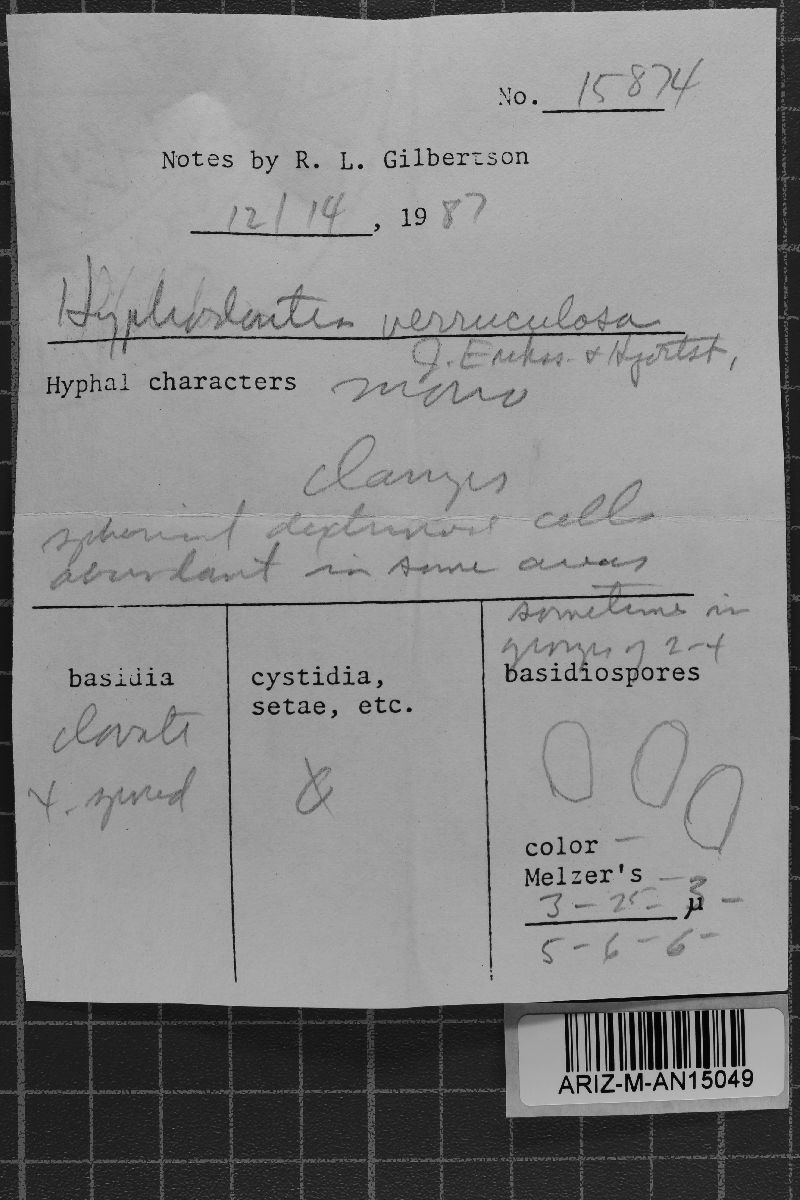 No. 15874
Notes by R. L. Gilbertson
12/14, 1987
Hyphodontia verruculosa
J. Erikss. & Hjortst.
Hyphal characters mono
clamps
spherical dextrinoid cells
abundant in some areas
sometime in
groups of 2-4
basidia
clavate
4-spored
cystidia,
setae, etc.
basidiospores
color -
Melzer's -
3 - 25 - 3 - µ
5 - 6 - 6 -
ARIZ-M-AN15049